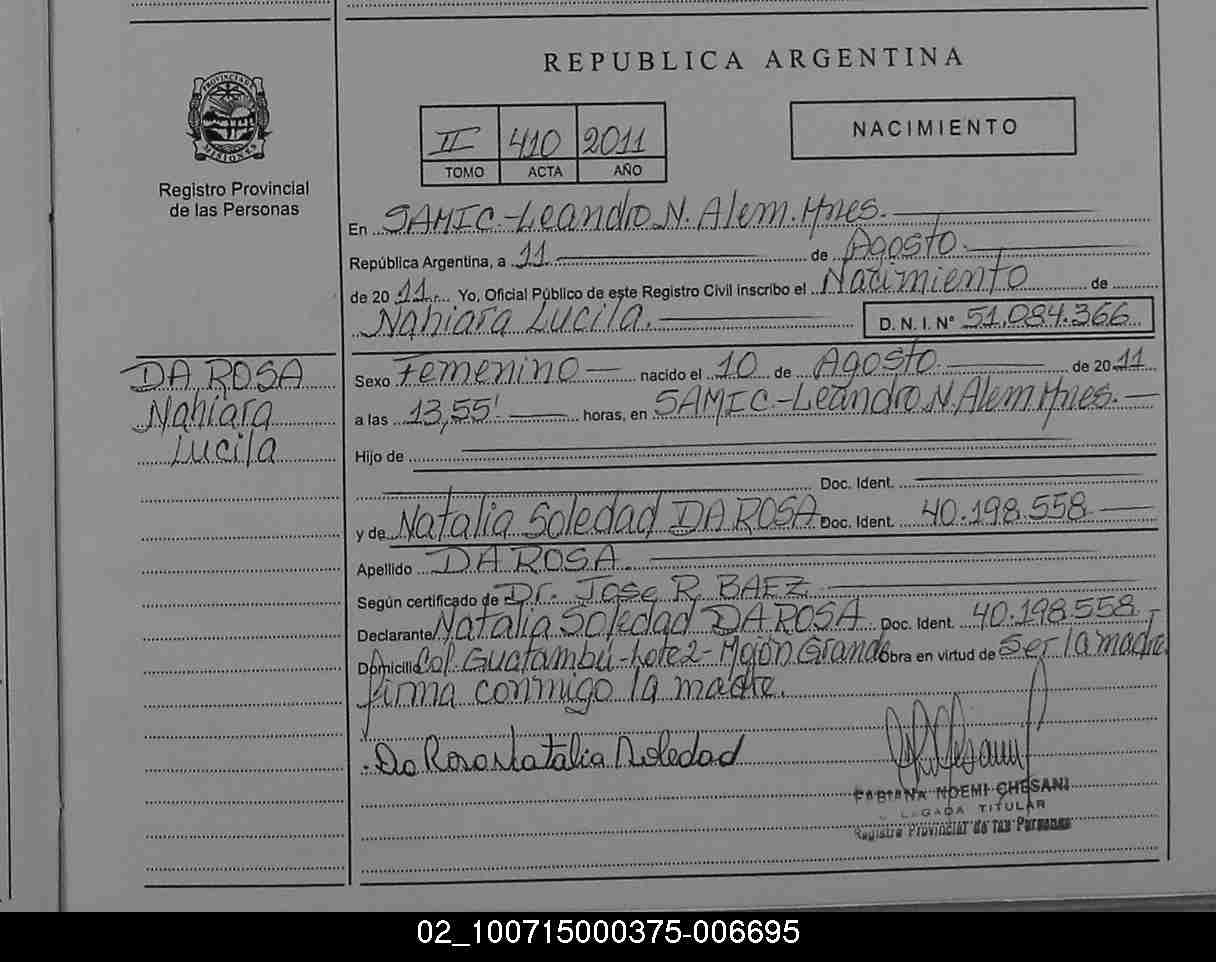 REPUBLICA ARGENTINA
PROVINCIA DE
MISIONES
Registro Provincial
de las Personas
II 410 2011
TOMO ACTA AÑO
NACIMIENTO
En SAMIC-Leandro N. Alem. Mnes.
República Argentina, a 11 de Agosto
de 2011 Yo, Oficial Público de este Registro Civil inscribo el Nacimiento de
Nahiara Lucila. D. N. I. Nº 51.084.366
DA ROSA
Nahiara
Lucila
Sexo Femenino nacido el 10 de Agosto de 2011
a las 13,55' horas, en SAMIC-Leandro N. Alem Mnes.
Hijo de
Doc. Ident.
y de Natalia Soledad DA ROSA Doc. Ident. 40.198.558
Apellido DA ROSA.
Según certificado de Dr. Jose R. BAEZ
Declarante Natalia Soledad DA ROSA Doc. Ident. 40.198.558
Domicilio Col. Guatambú-Lote 2-Mojón Grande Obra en virtud de Ser la madre
firma conmigo la madre.
Da Rosa Natalia Soledad
FABIANA NOEMI CHESANI
TITULAR
Registro Provincial de las Personas
02_100715000375-006695